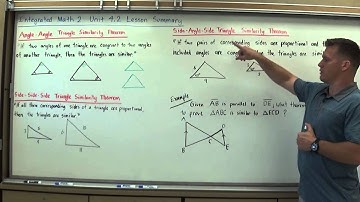 Integrated Math 2 Unit 4.2 Lesson Summary
Angle-Angle Triangle Similarity Theorem
"If two angles of one triangle are congruent to two angles
of another triangle, then the triangles are similar"
Side-Side-Side Triangle Similarity Theorem
"If all three corresponding sides of a triangle are proportional,
then the triangles are similar"
Side-Angle-Side Triangle Similarity Theorem
"If two pairs of corresponding sides are proportional and the
included angles are congruent the triangles are similar
Example
Given AB is parallel to DE, what theorem
to prove △ABC is similar to △ECD?
A
B
C
D
E